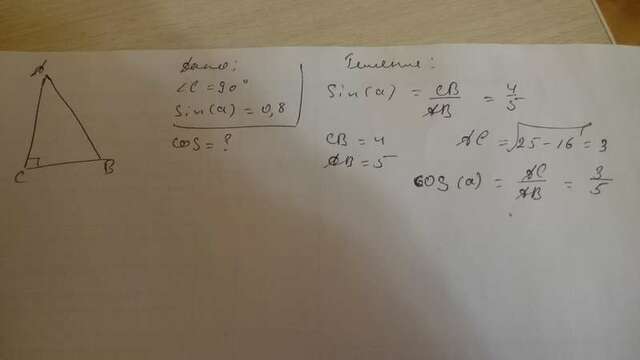 A
C
B
Дано:
∠C = 90°
Sin(a) = 0,8
cos = ?
Решение:
Sin(a) = CB/AB = 4/5
CB = 4
AB = 5
AC = √25 - 16 = 3
cos(a) = AC/AB = 3/5